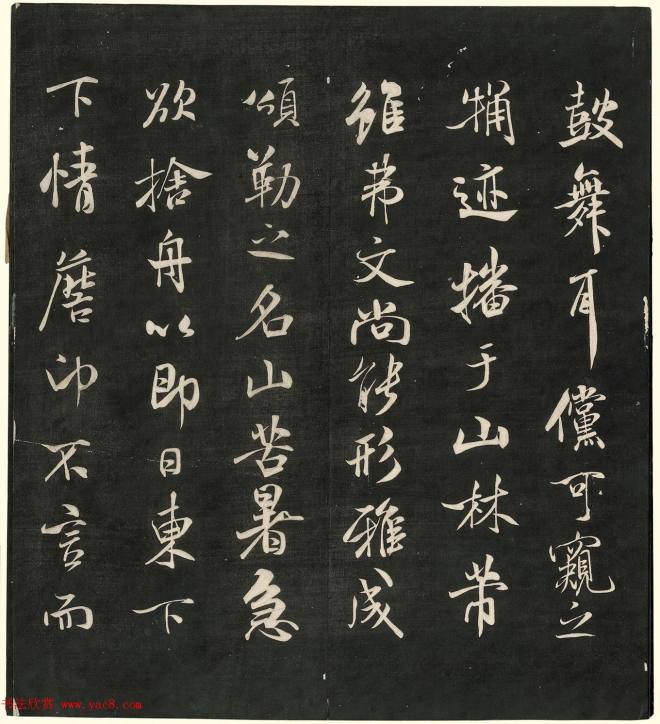 鼓舞耳儻可窺之
迹播于山林芾
雖弗文尚能形雅成
頌勒之名山苦暑急
欲捨舟以即日東下
下情詹卬不宣而
书法欣赏 www.yac8.com